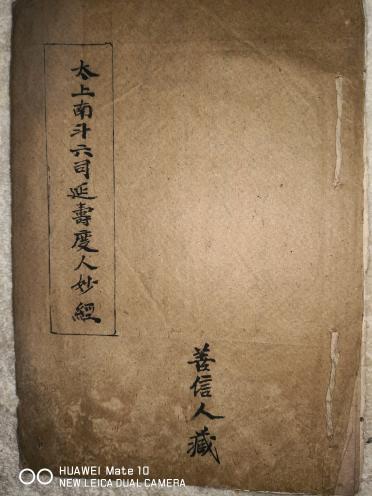 太上南斗六司延壽度人妙經
善信人藏
HUAWEI Mate 10
NEW LEICA DUAL CAMERA